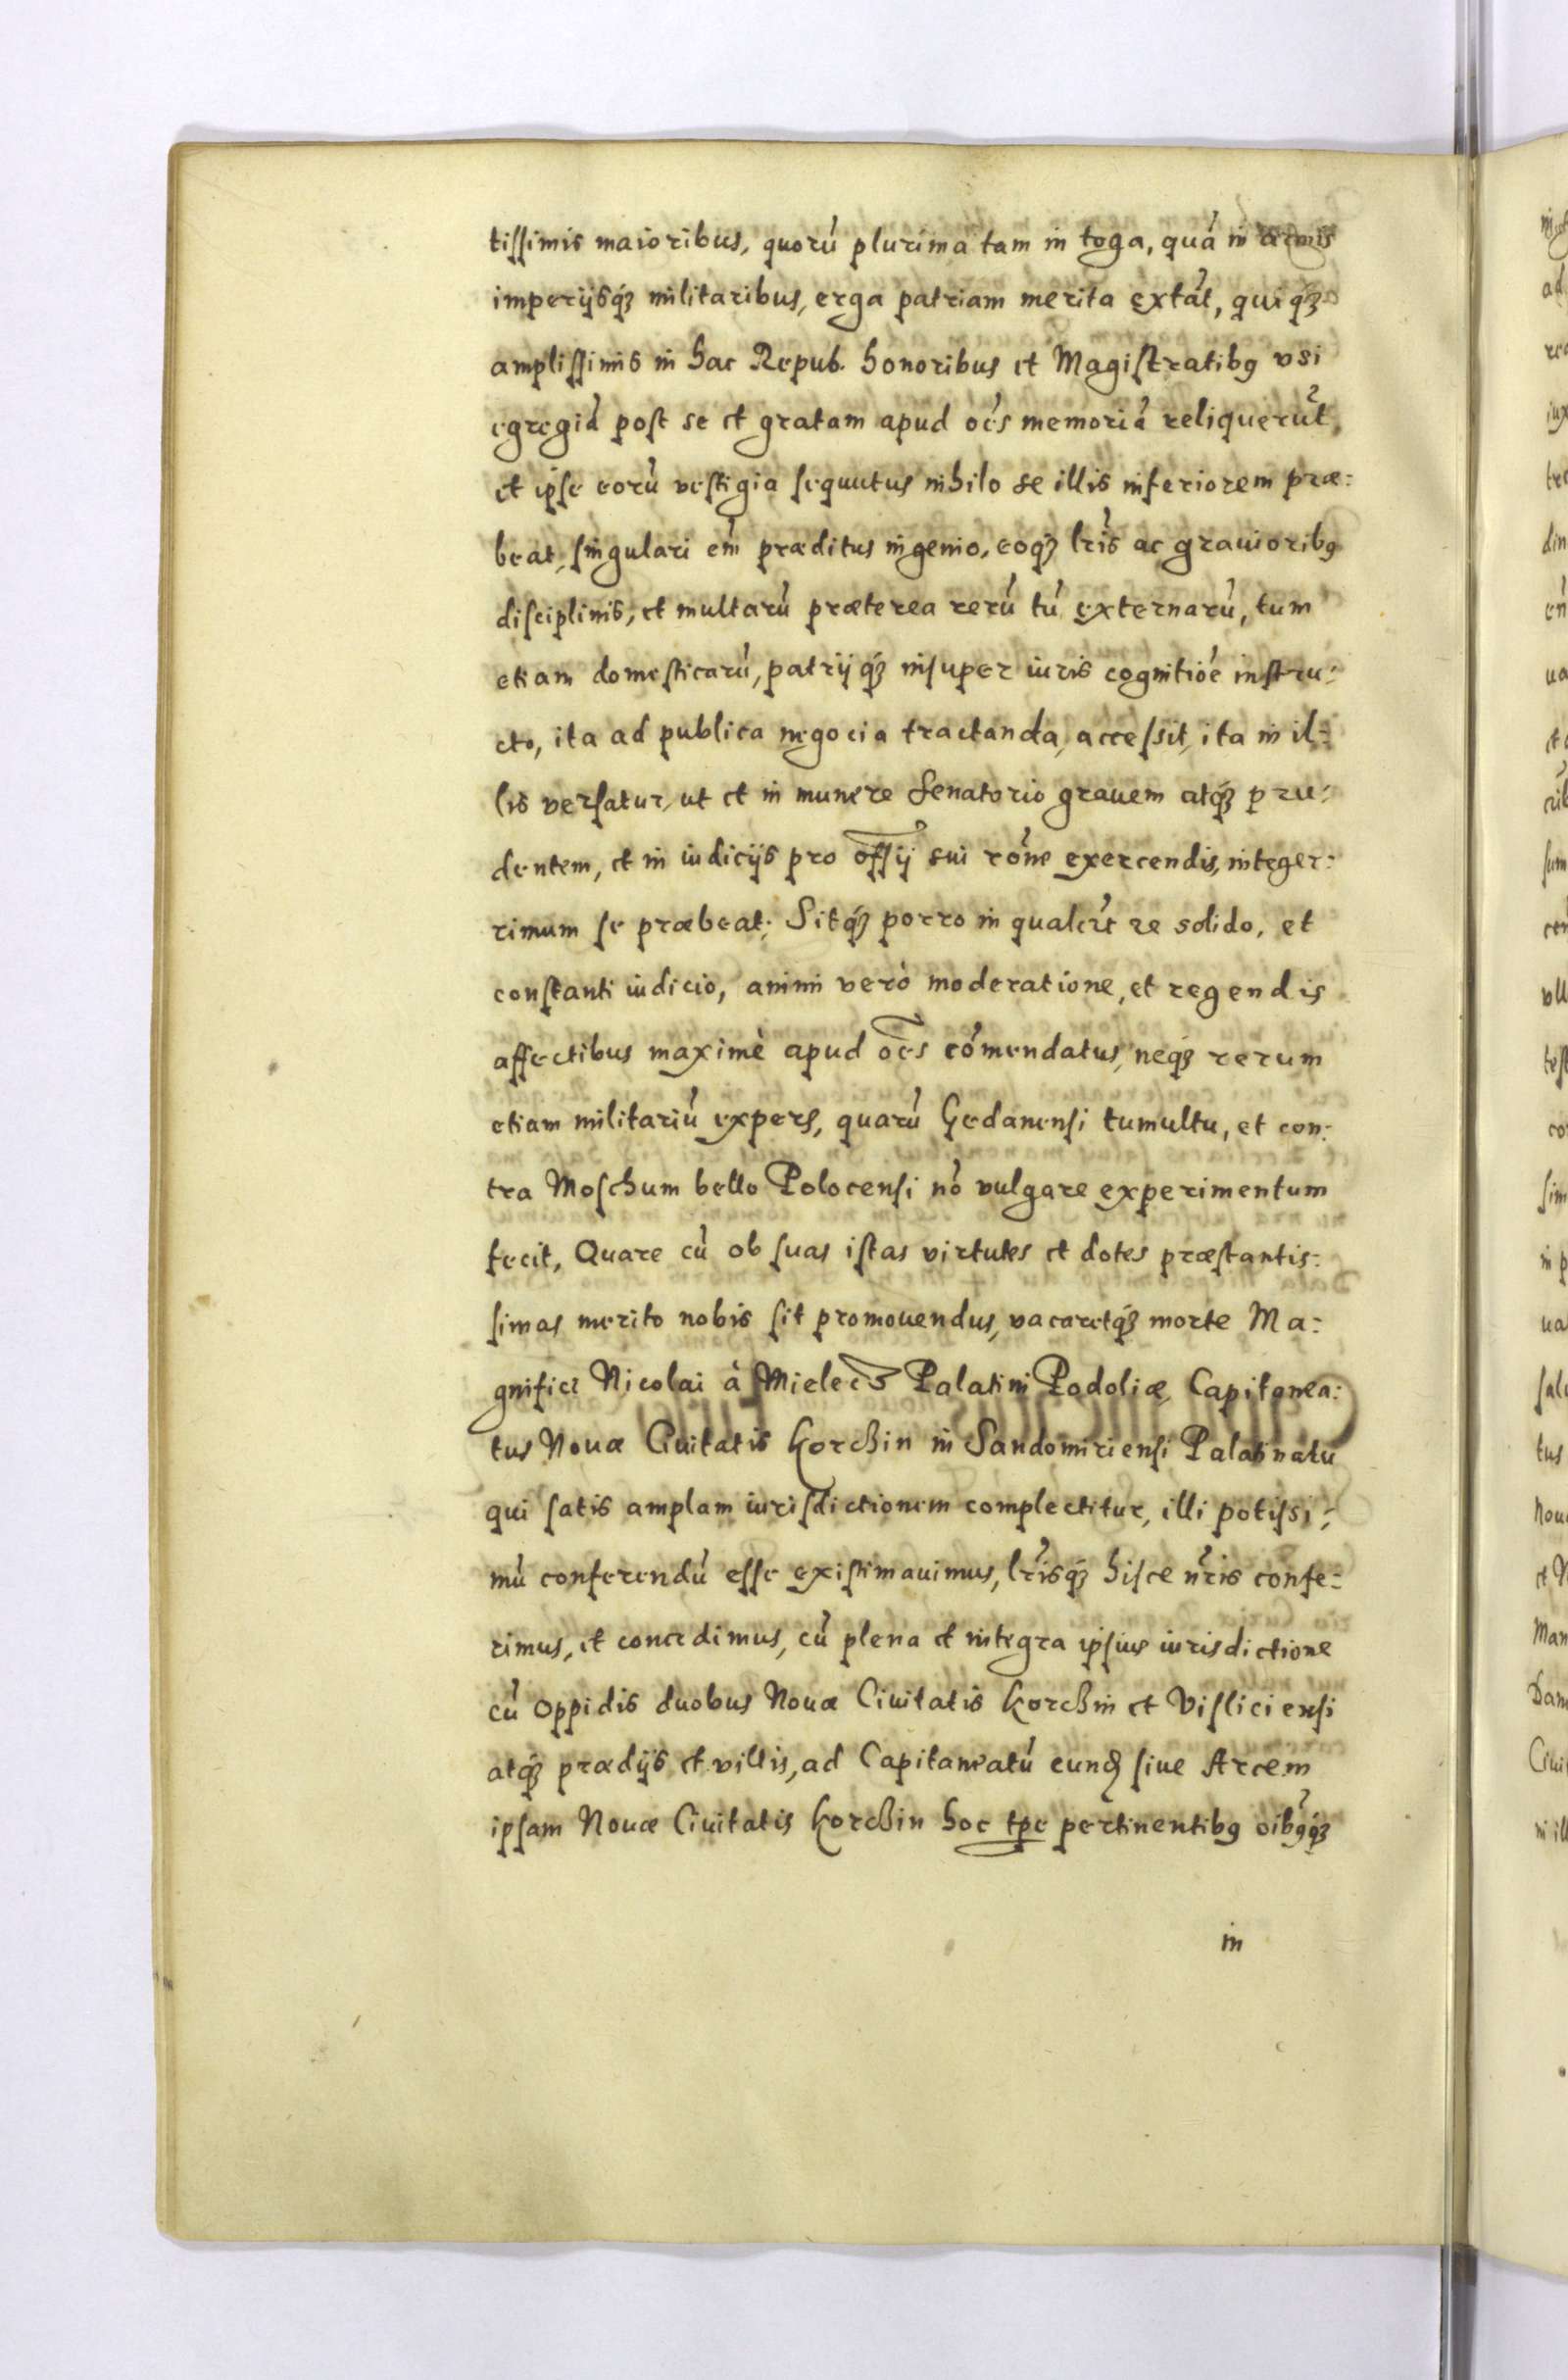 tissimis maioribus, quorū plurima tam in toga, quā in armis
imperijsq́ꝫ militaribus, erga patriam merita extāt, quiq́ꝫ
amplissimis in hac Repub. honoribus et Magistratibꝰ vsi
egregiā post se et gratam apud oēs memoriā reliquerūt,
et ipse eorū vestigia sequutus nihilo se illis inferiorem præ:
beat, singulari em̄ præditus ingenio, eoqꝫ lr̄is ac grauioribꝰ
disciplinis, et multarū præterea rerū tū externarū, tum
etiam domesticarū, patrijq́ꝫ insuper iuris cognitiōe instru:
cto, ita ad publica negocia tractanda, accessit, ita in il:
lis versatur, ut et in munere Senatorio grauem atq́ꝫ pru:
dentem, et in iudicijs pro offīj sui rōne exercendis, integer:
rimum se præbeat; Sitq́ꝫ porro in re solido, et
constanti iudicio, animi verò moderatione, et regendis
affectibus maximè apud oēs cōmendatus, neqꝫ rerum
etiam militariū expers, quarū Gedanensi tumultu, et con:
tra Moschum bello Polocensi nō vulgare experimentum
fecit, Quare cū ob suas istas virtutes et dotes præstantis:
simas merito nobis sit promouendus, vacaretq́ꝫ morte Ma:
gnifici Nicolai à Mielecz Palatini Podoliæ, Capitanea:
tus Nouæ Ciuitatis Korchin in Sandomiriensi Palatinatu
qui satis amplam iurisdictionem complectitur, illi potissi:
mū conferendū esse existimauimus, lr̄isq́ꝫ hisce nr̄is confe:
rimus, et concedimus, cū plena et integra ipsius iurisdictione
cū oppidis duobus Nouæ Ciuitatis Korchin et Visliciensi
atq́ꝫ prædijs et villis, ad Capitaneatū eund siue Arcem
ipsam Nouæ Ciuitatis Korchin hoc tpe pertinentibꝰ oībꝰq́ꝫ
in